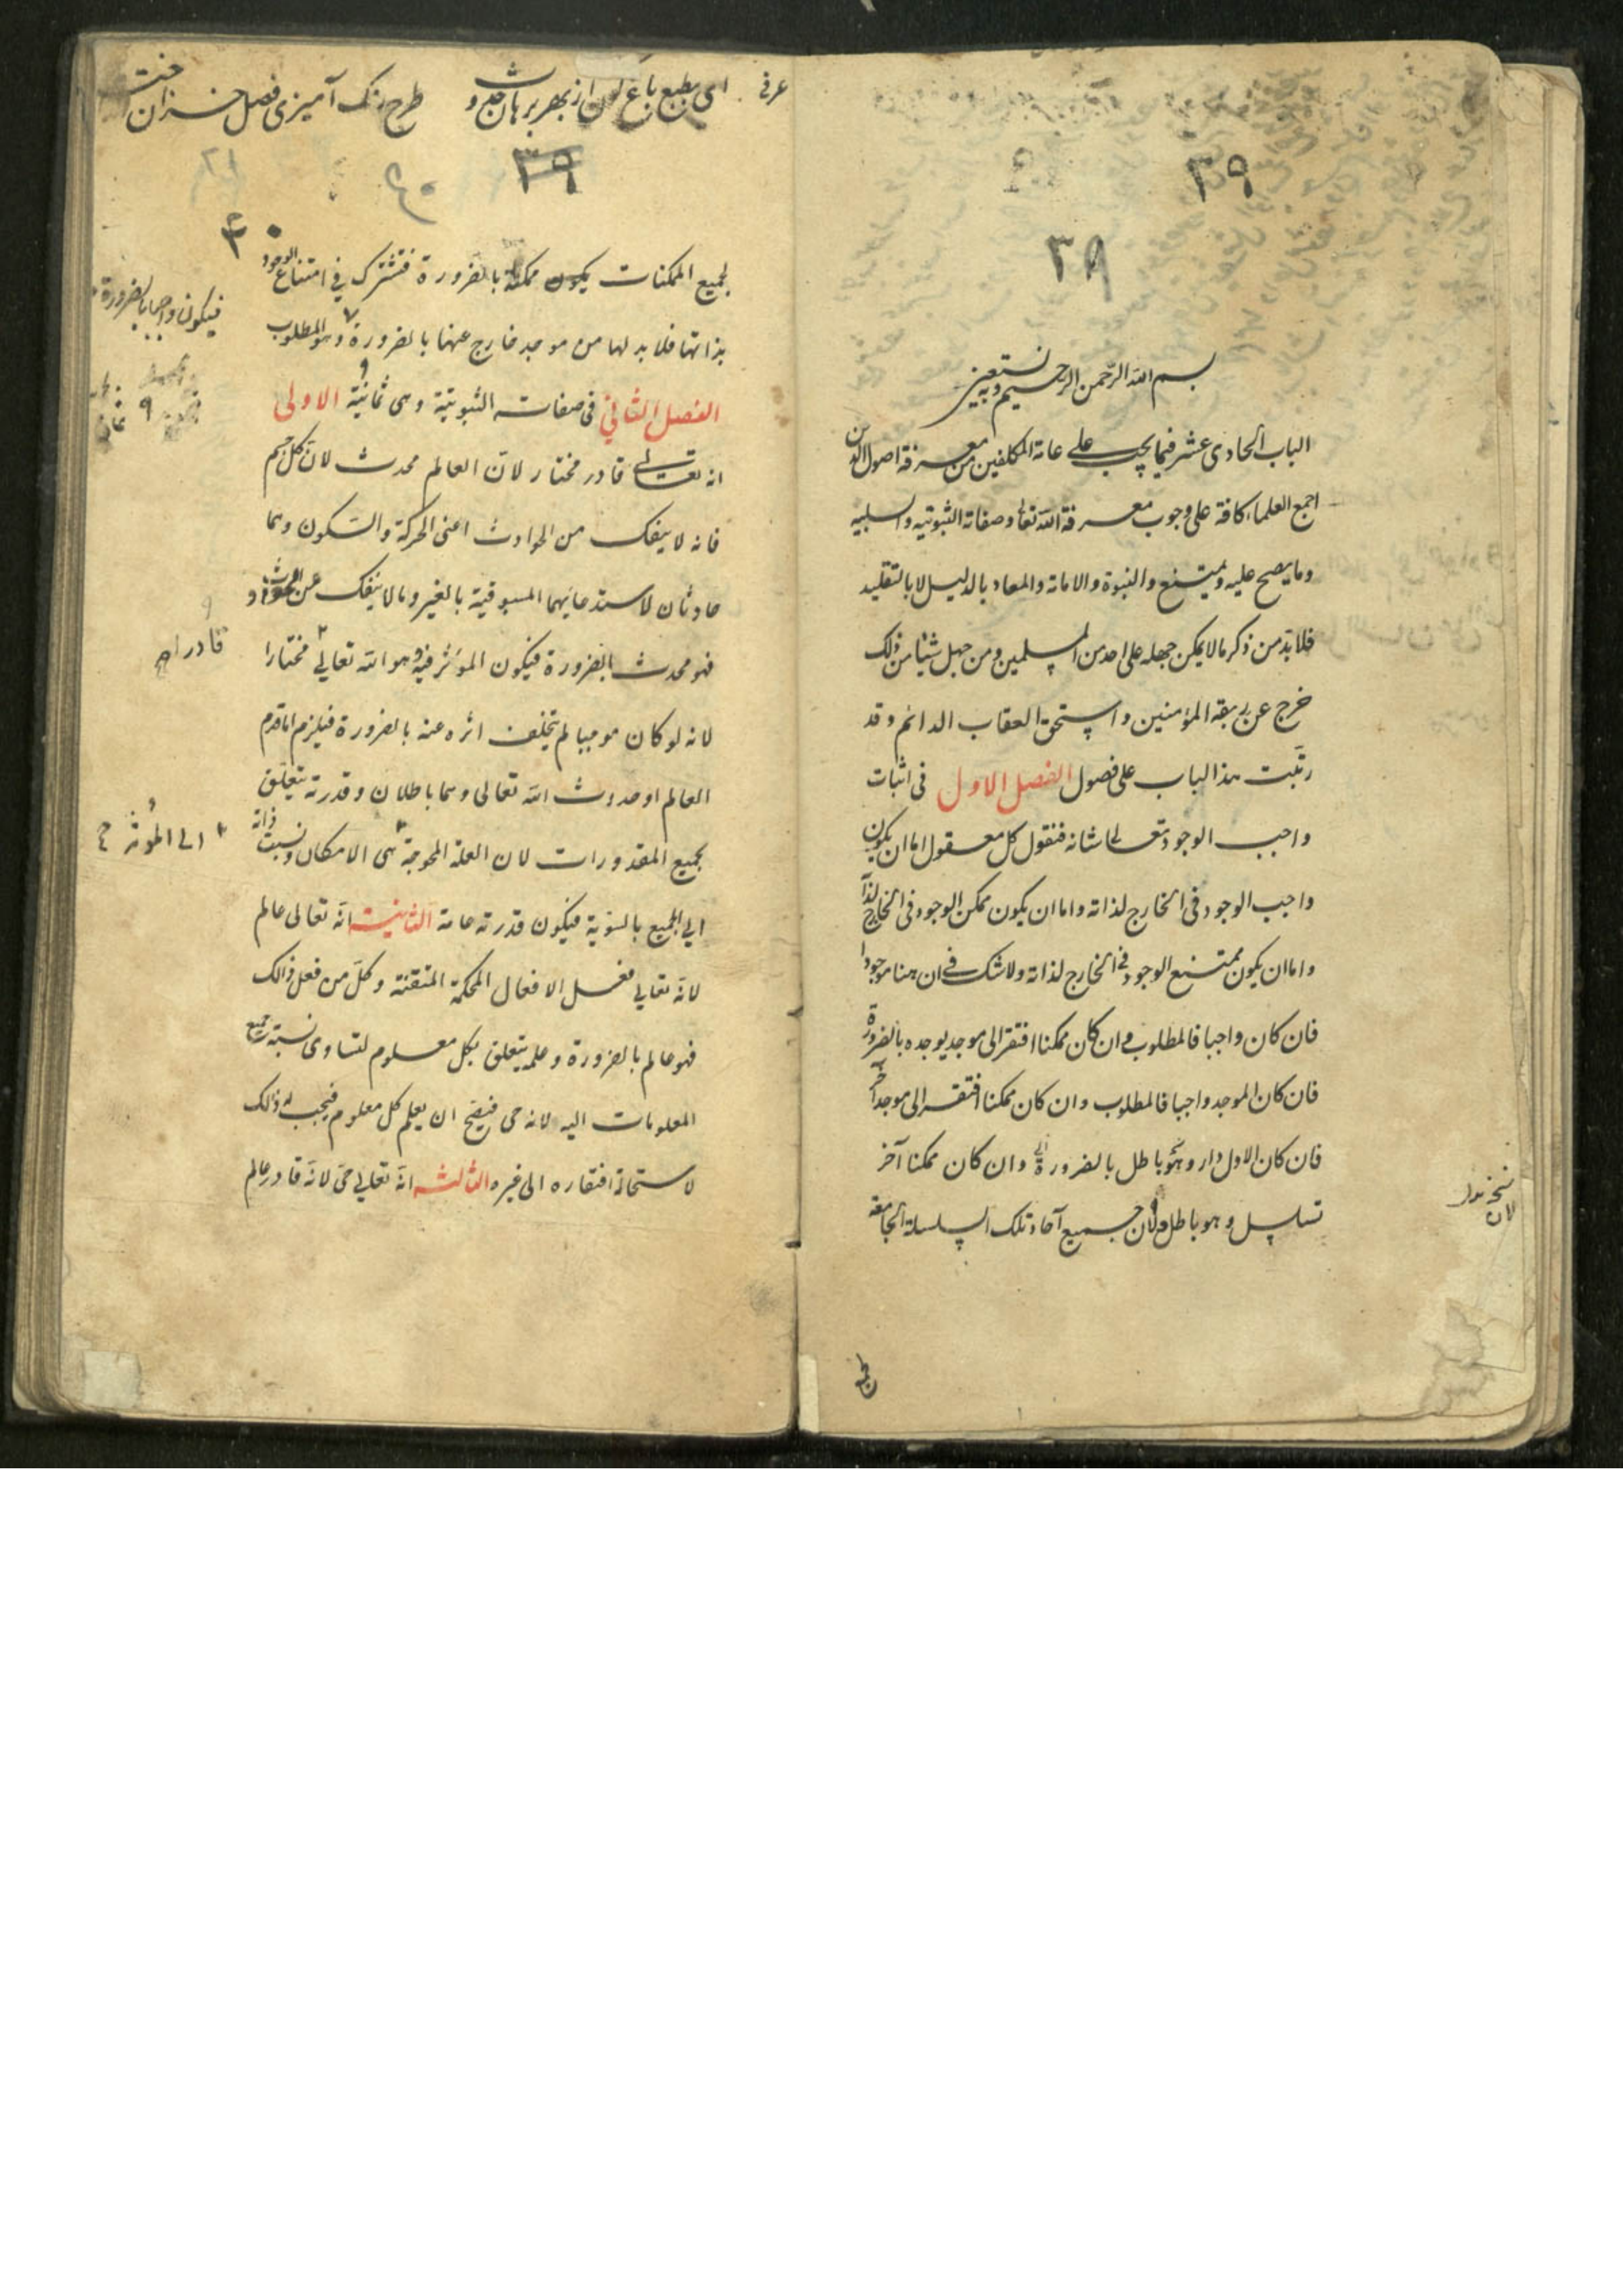 ٣٩
٣٩
بسم الله الرحمن الرحيم وبه نستعين
الباب الحادى عشر فيما يجب على عامة المكلفين من معرفة اصول الدين
اجمع العلماء كافة على وجوب معرفة الله تعالى وصفاته الثبوتيه والسلبيه
وما يصح عليه ويمتنع والنبوة والامامة والمعاد بالدليل لا بالتقليد
فلا بد من ذكر ما لا يمكن جهله على احد من المسلمين ومن جهل شيئا من ذلك
خرج عن ربقة المؤمنين واستحق العقاب الدائم وقد
رتبت هذا الباب على فصول الفصل الاول فى اثبات
واجب الوجود تعالى شانه فنقول كل معقول اما ان يكون
واجب الوجود فى الخارج لذاته واما ان يكون ممكن الوجود فى الخارج لذاته
واما ان يكون ممتنع الوجود فى الخارج لذاته ولا شك فى ان هنا موجودا
فان كان واجبا فالمطلوب وان كان ممكنا افتقر الى موجد يوجده بالضرورة
فان كان الموجد واجبا فالمطلوب وان كان ممكنا افتقر الى موجد آخر
فان كان الاول دار وهو باطل بالضرورة وان كان ممكنا آخر
تسلسل وهو باطل لان جميع آحاد تلك السلسلة الجامعة
لان
عرفى
طرح رنگ آميزى فصل خزان
٣٩
٤٠
لجميع الممكنات يكون ممكنة بالضرورة فتشترك في امتناع الوجود
بذاتها فلا بد لها من موجد خارج عنها بالضرورة وهو المطلوب
فيكون واجبا بالضرورة
الفصل الثاني فى صفاته الثبوتية وهى ثمانية الاولى
انه تعالى قادر مختار لان العالم محدث لان كل جسم
فانه لا ينفك من الحوادث اعنى الحركة والسكون وهما
حادثان لاستدعائهما المسبوقية بالغير وما لا ينفك عن الحوادث
فهو محدث بالضرورة فيكون المؤثر فيه وهو الله تعالى مختارا
قادرا
لانه لو كان موجبا لم يتخلف اثره عنه بالضرورة فيلزم اما قدم
العالم او حدوث الله تعالى وهما باطلان وقدرته يتعلق
بجميع المقدورات لان العلة المحوجة هى الامكان ونسبت ذاته
الى المؤثر
الى الجميع بالسوية فيكون قدرته عامة الثانية انه تعالى عالم
لانه تعالى فعل الافعال المحكمة المتقنة وكل من فعل ذالك
فهو عالم بالضرورة وعلمه يتعلق بكل معلوم لتساوى نسبة جميع
المعلومات اليه لانه حى فيصح ان يعلم كل معلوم فيجب له ذلك
لاستحالة افتقاره الى غيره الثالثه انه تعالى حى لانه قادر عالم